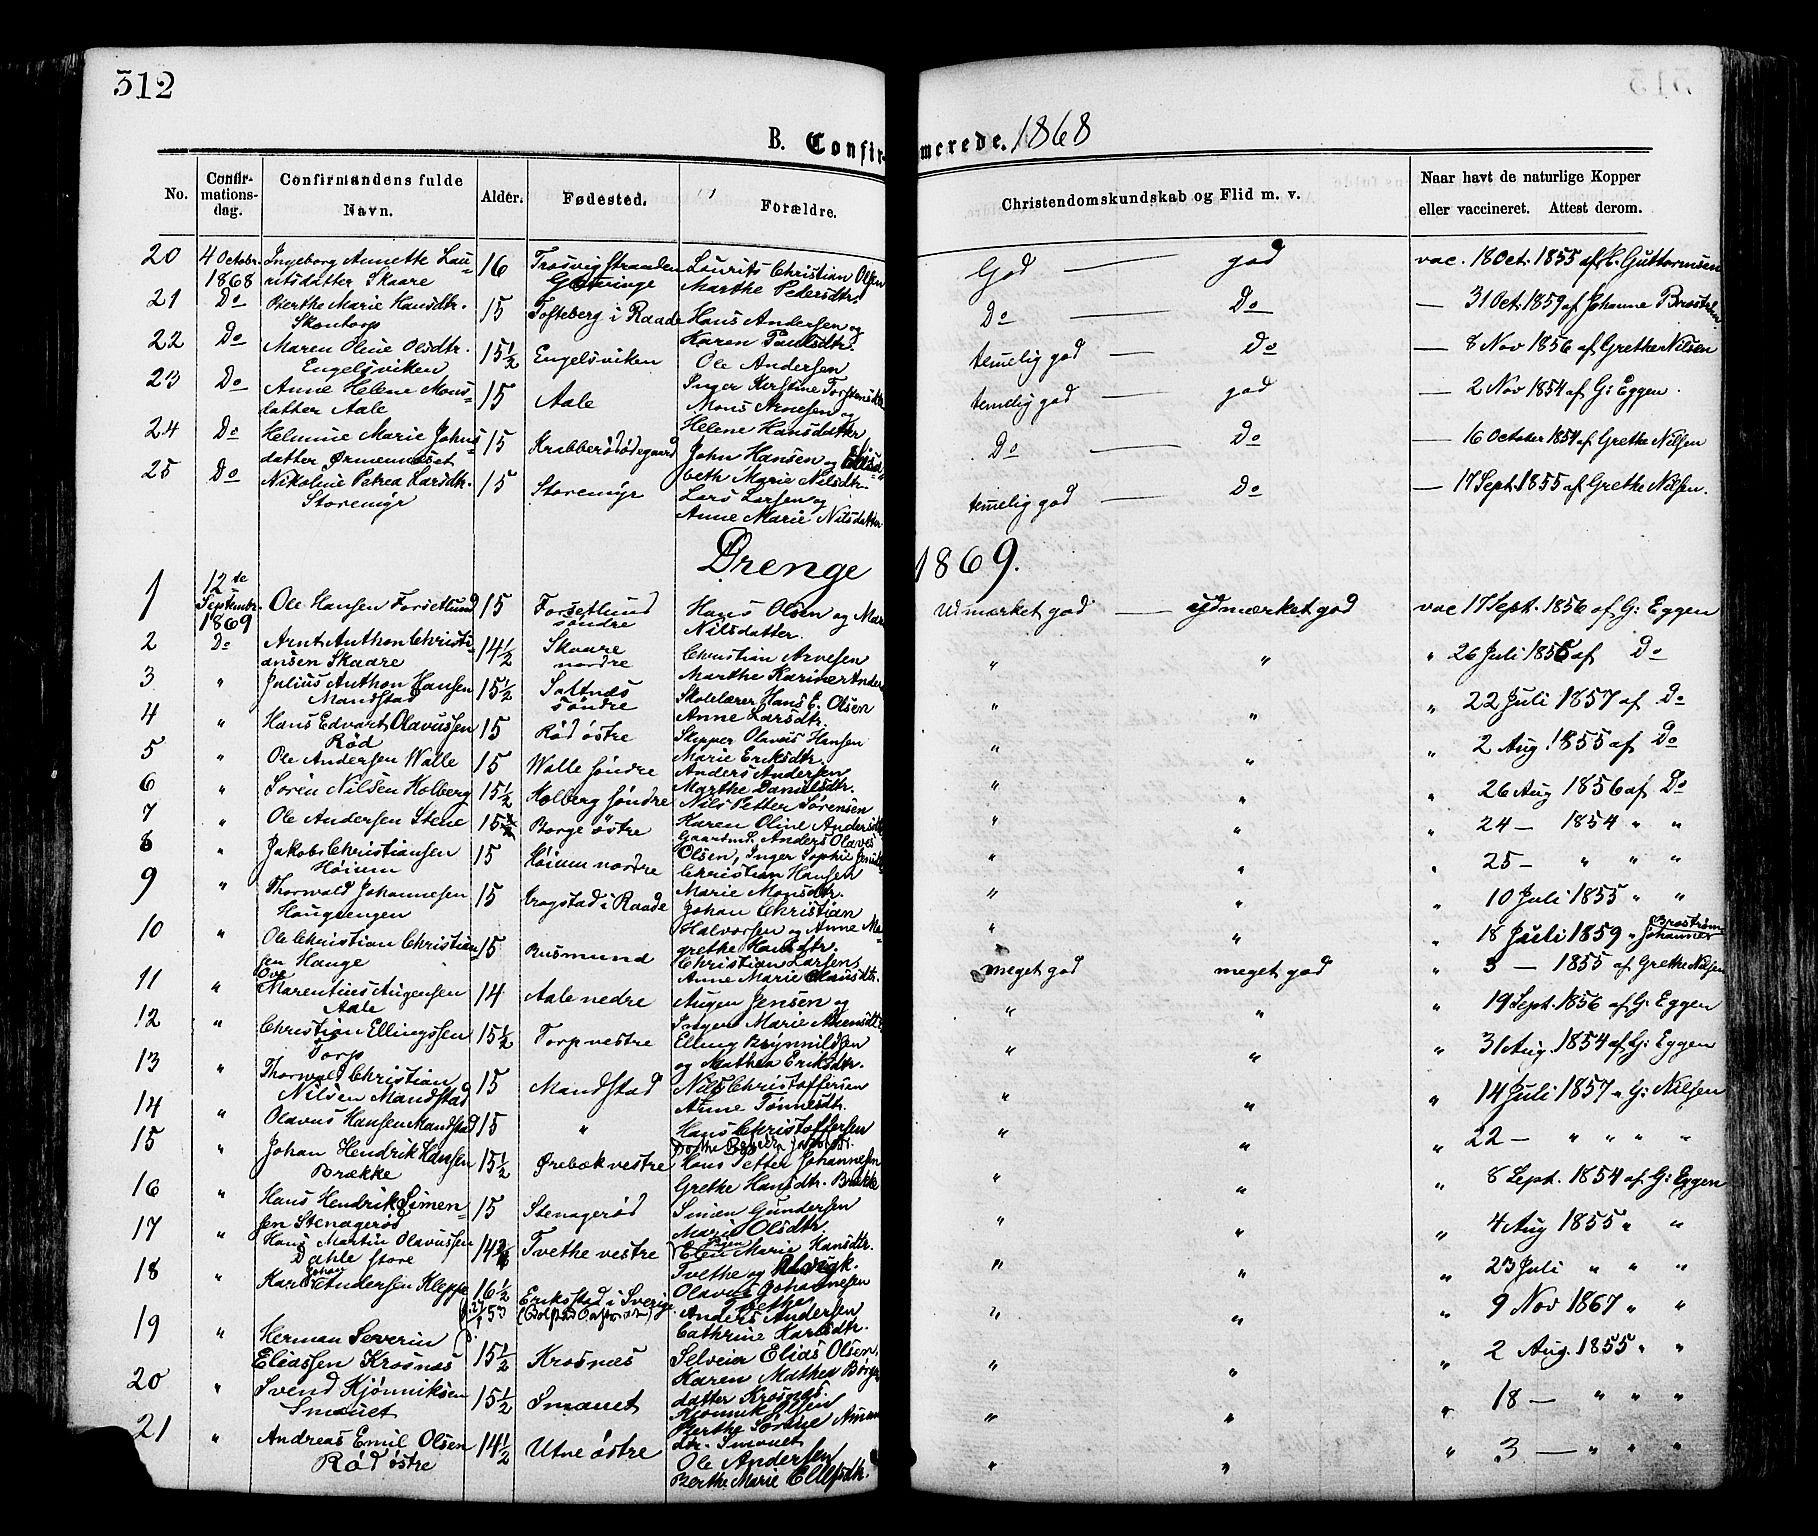 312
B. Confirmerede. 1868
No. Confirmationsdag. Confirmandens fulde Navn. Alder. Fødested. Forældre. Christendomskundskab og Flid m. v. Naar havt de naturlige Kopper eller vaccineret. Attest derom.
20 4 Octobr. 1868 Ingeborg Annette Lauritsdatter Skaare 16 Trosvigstranden Laurits Christian Olsen Marthe Pedersdtr. God — god vac. 18 Oct. 1855 af Guttormsen
21 Do Berthe Marie Hansdtr. Skontorp 15 Tofteberg i Raade Hans Andersen og Karen Paulsdtr. Do — Do — 31 Oct. 1859 af Johanne
22 Do Maren Oline Olsdtr. Engelsviken 15½ Engelsviken Ole Andersen Inger Kerstine temelig god — Do — 8 Nov 1856 af Grethe Nilsen
23 Do Anne Helene Monsdatter Aale 15 Aale Mons Arnesen og Helene Hansdatter temelig god god — 2 Nov 1854 af G: Eggen.
24 Do Helmine Marie Johnsdatter 15 Krabberødødegaard John Hansen og Elisabeth Marie Nilsdtr. Do — Do — 16 October 1854 af Grethe Nilsen
25 Do Nikoline Petrea Larsdtr. Storemyr 15 Storemyr Lars Larsen og Anne Marie Nilsdatter temelig god Do — 17 Sept. 1855 af Grethe Nilsen.
Drenge 1869.
1 12te Septembr. 1869 Ole Hansen Forsetlund 15 Forsetlund søndre Hans Olsen og Nilsdatter. Udmærket god — udmærket god vac 17 Sept. 1856 af G: Eggen
2 Do Arnt Anthon Christiansen Skaare 14½ Skaare nordre Christian Arvesen Marthe Karine " " " 26 Juli 1856 af Do
3 " Julius Anthon Hansen Mandstad 15½ Saltnæs søndre Skolelærer Hans E. Olsen Anne Larsdtr. " " " 22 Juli 1857 af Do
4 " Hans Edvart Olavussen Rød 15 Rød østre Skipper Olavus Hansen Marie Eriksdtr. " " " 2 Aug 1855 af Do
5 " Ole Andersen Walle 15 Walle søndre Anders Andersen Marthe Danielsdtr. " " " 26 Aug 1856 af Do
6 " Søren Nilsen Kolberg 15½ Kolberg søndre Nils Petter Sørensen Karen Oline " " " 24 — 1854 " "
7 " Ole Andersen Stene 15 Borge østre Gaardm. Anders Olaves Olsen, Inger Sophie " " " 25 — " " "
8 " Jakob Christiansen Høium 15 Høium nordre Christian Hansen Marie Monsdtr. " " " 10 Juli 1855 " "
9 " Thorwald Johannesen Haugsengen 15 Kragstad i Raade Johan Christian Halvorsen og Anne Magrethe Hansdtr. " " " 18 Juli 1859 " Johanne
10 " Ole Christian Christiansen Hauge 15 Rusmund Christian Larsen, Anne Marie Clausdtr. meget god meget god " 3 — 1855 af Grethe Nilsen
11 " Ove Marentius Augensen Aale 14 Aale nedre Augen Jensen og Inger Marie " " " 19 Sept. 1856 af G: Eggen
12 " Christian Ellingssen Torp 15½ Torp vestre Elling Brynnildsen og Mathea Eriksdtr. " " " 31 Aug. 1854 af G: Eggen
13 " Thorwald Christian Nilsen Mandstad 15 Mandstad Nils Christoffersen Anne Tønnesdtr. " " " 14 Juli 1857 " G: Nilsen
14 " Olavus Hansen Mandstad 15 " Hans Christoffersen " " " 22 — " " " "
15 " Johan Hendrik Hansen Brække 15½ Ørebæk vestre Hans Petter Johannesen Grethe Hansdtr. Brække " " " 8 Sept. 1854 af G: Eggen
16 " Hans Hendrik Simensen Stenagerød 15 Stenagerød Simen Gundersen Marie Olsdtr " " " 4 Aug 1855 " "
17 " Hans Martin Olavussen Dahle store 14 Tvethe vestre Elen Marie Hansdtr. Tvethe og Olavus Johannesen Tvethe " " " 23 Juli " " "
18 " Karl Johan Andersen Kleppe 16½ Erikstad i Sverige Anders Andersen Cathrine Karlsdtr. " " " 9 Nov 1867 " "
19 " Herman Severin Eliassen Krosnæs 15½ Krosnæs Selveier Elias Olsen, Karen Mathea Børgedatter Krosnæs. " " " 2 Aug. 1855 " "
20 " Svend Kjønniksen Smauet 15½ Smauet Kjønnik Olsen Berthe Sørine Smauet " " " 18 — " " "
21 " Andreas Emil Olsen Rød østre 14½ Utne østre Ole Andersen Berthe Marie Ellefsdtr. " " " 3 — " " "